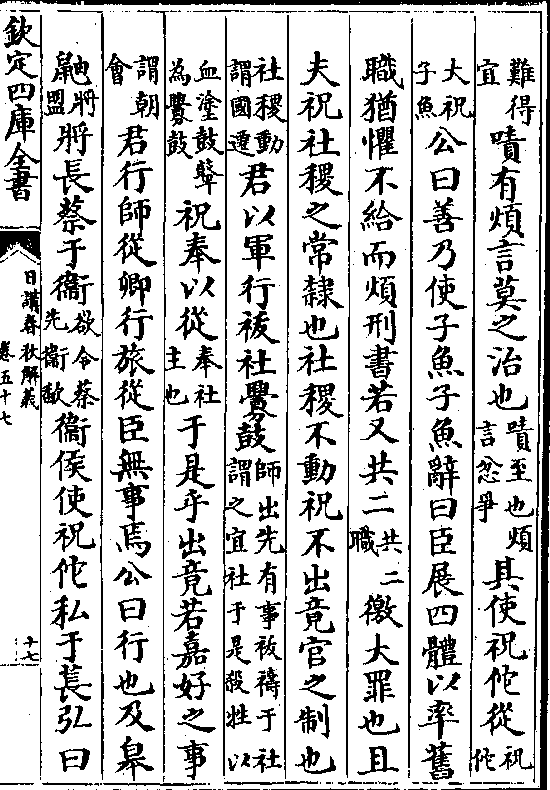 難得宜嘖有煩言莫之治也嘖至也煩言忿爭其使祝佗從祝佗
大祝子魚公曰善乃使子魚子魚辭曰臣展四體以率舊
職猶懼不給而煩刑書若又共二共二職徼大罪也且
夫祝社稷之常隸也社稷不動祝不出竟官之制也
社稷動謂國遷君以軍行祓社釁鼓師出先有事祓禱于社謂之宜社于是殺牲以
血塗鼓鼙為釁鼓祝奉以從奉社主也于是乎出竟若嘉好之事
謂朝會君行師從卿行旅從臣無事焉公曰行也及皋
鼬將盟將長蔡于衞欲令蔡先衞歃衞侯使祝佗私于萇弘曰
欽定四庫全書
日講春秋解義
卷五十七
十七